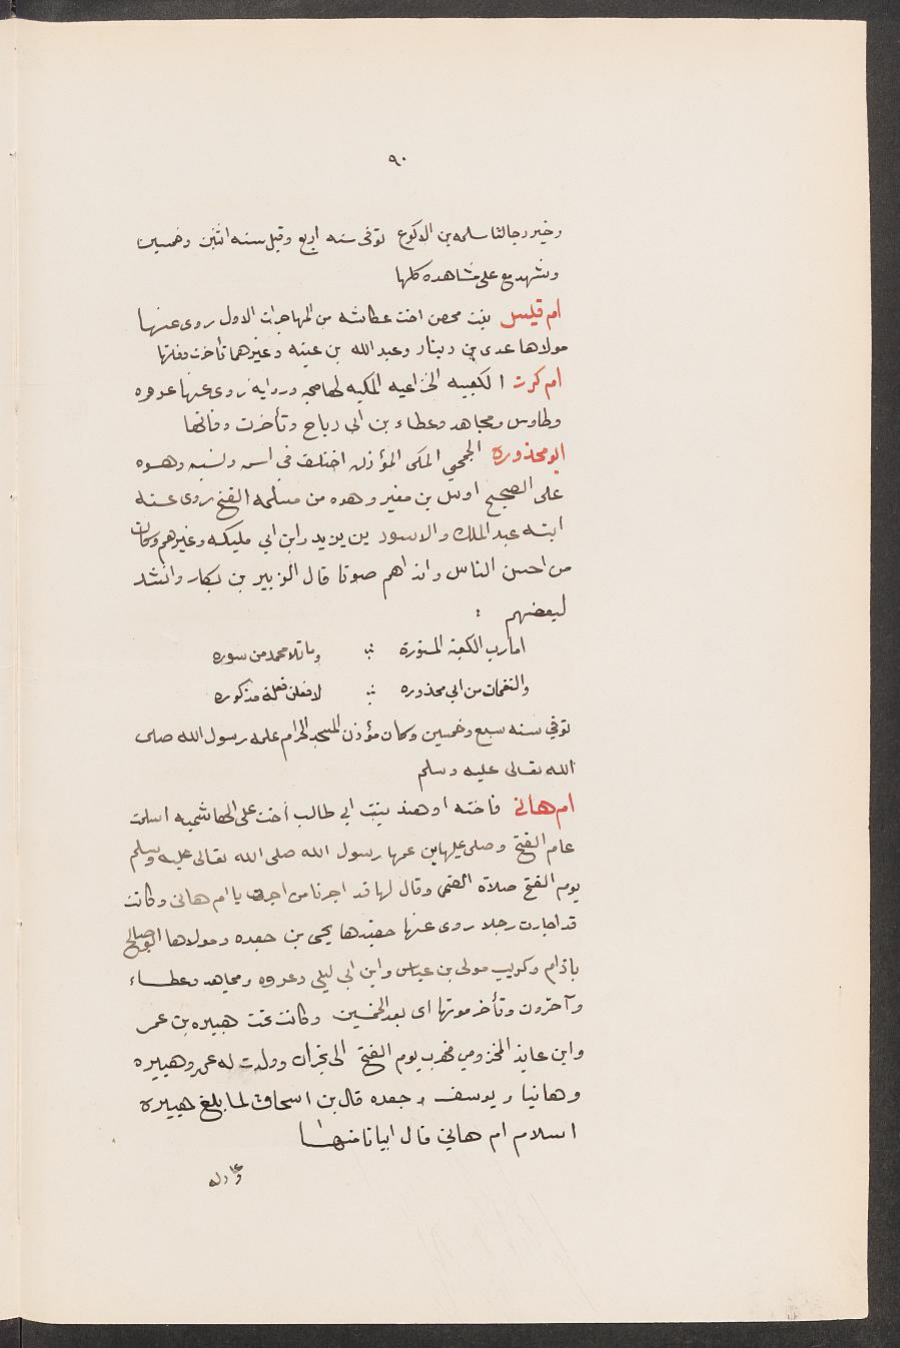 ٩٠
وخير رجالنا سلمه بن الاكوع توفى سنه اربع وقيل سنه اثنين وخمسين
وشهد مع على مشاهده كلها
ام قيس بنت محصن اخت عكاشه من المهاجرات الاول روى عنها
مولاها عدى بن دينار وعبد الله بن عتبه وغيرهما تأخرت وفاتها
ام كرز الكعبيه الخزاعيه المكيه لها صحبه وروايه روى عنها عروه
وطاوس ومجاهد وعطاء بن ابى رباح وتأخرت وفاتها
ابو محذوره الجمحي المكى المؤذن اختلف فى اسمه ونسبه وهو
على الصحيح اوس بن مغير وهو من مسلمه الفتح روى عنه
ابنه عبد الملك والاسود بن يزيد وابن ابي مليكه وغيرهم وكان
من احسن الناس وانداهم صوتا قال الزبير بن بكار وانشد
لبعضهم :
اما رب الكعبة المستورة وما تلا محمد من سوره
والنغمات من ابي محذوره لافعلن فعلة مذكوره
توفي سنه سبع وخمسين وكان مؤذن المسجد الحرام علمه رسول الله صلى
الله تعالى عليه وسلم
ام هاني فاخته او هند بنت ابي طالب أخت على الهاشميه اسلمت
عام الفتح وصلى عليها بن عمها رسول الله صلى الله تعالى عليه وسلم
يوم الفتح صلاة الضحى وقال لها قد اجرنا من اجرت يا ام هانى وكانت
قد اجارت رجلا روى عنها حفيدها يحيى بن جعده ومولاها ابو صالح
باذام وكريب مولى بن عباس وابن ابى ليلى وعروه ومجاهد وعطاء
وآخرون وتأخر موتها اى بعد الخمسين وكانت تحت هبيره بن عمر
وابن عايذ المخزومي فهرب يوم الفتح الى نجران وولدت له عمر وهبيره
وهانيا ويوسف وجعده قال بن اسحاق لما بلغ هبيرة
اسلام ام هاني قال ابياتا منها